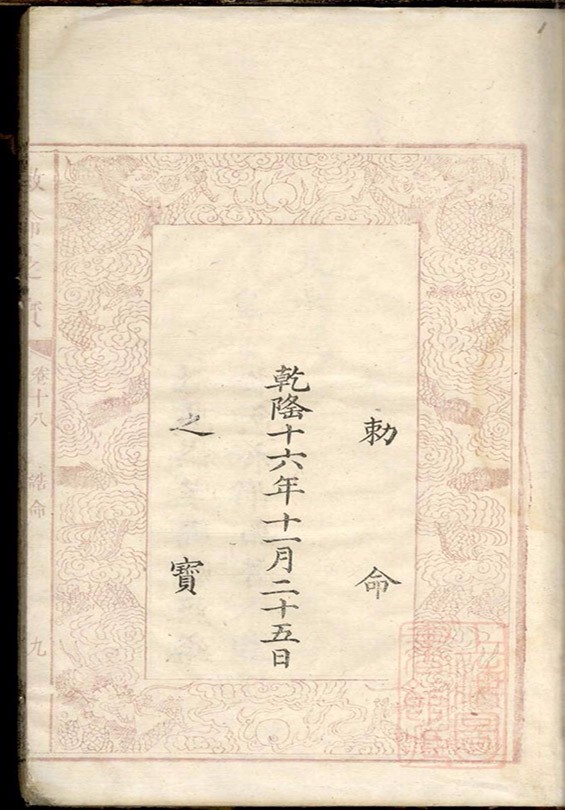 勅命
乾隆十六年十一月二十五日
之寶
敕命之寳
卷十八
誥命
九